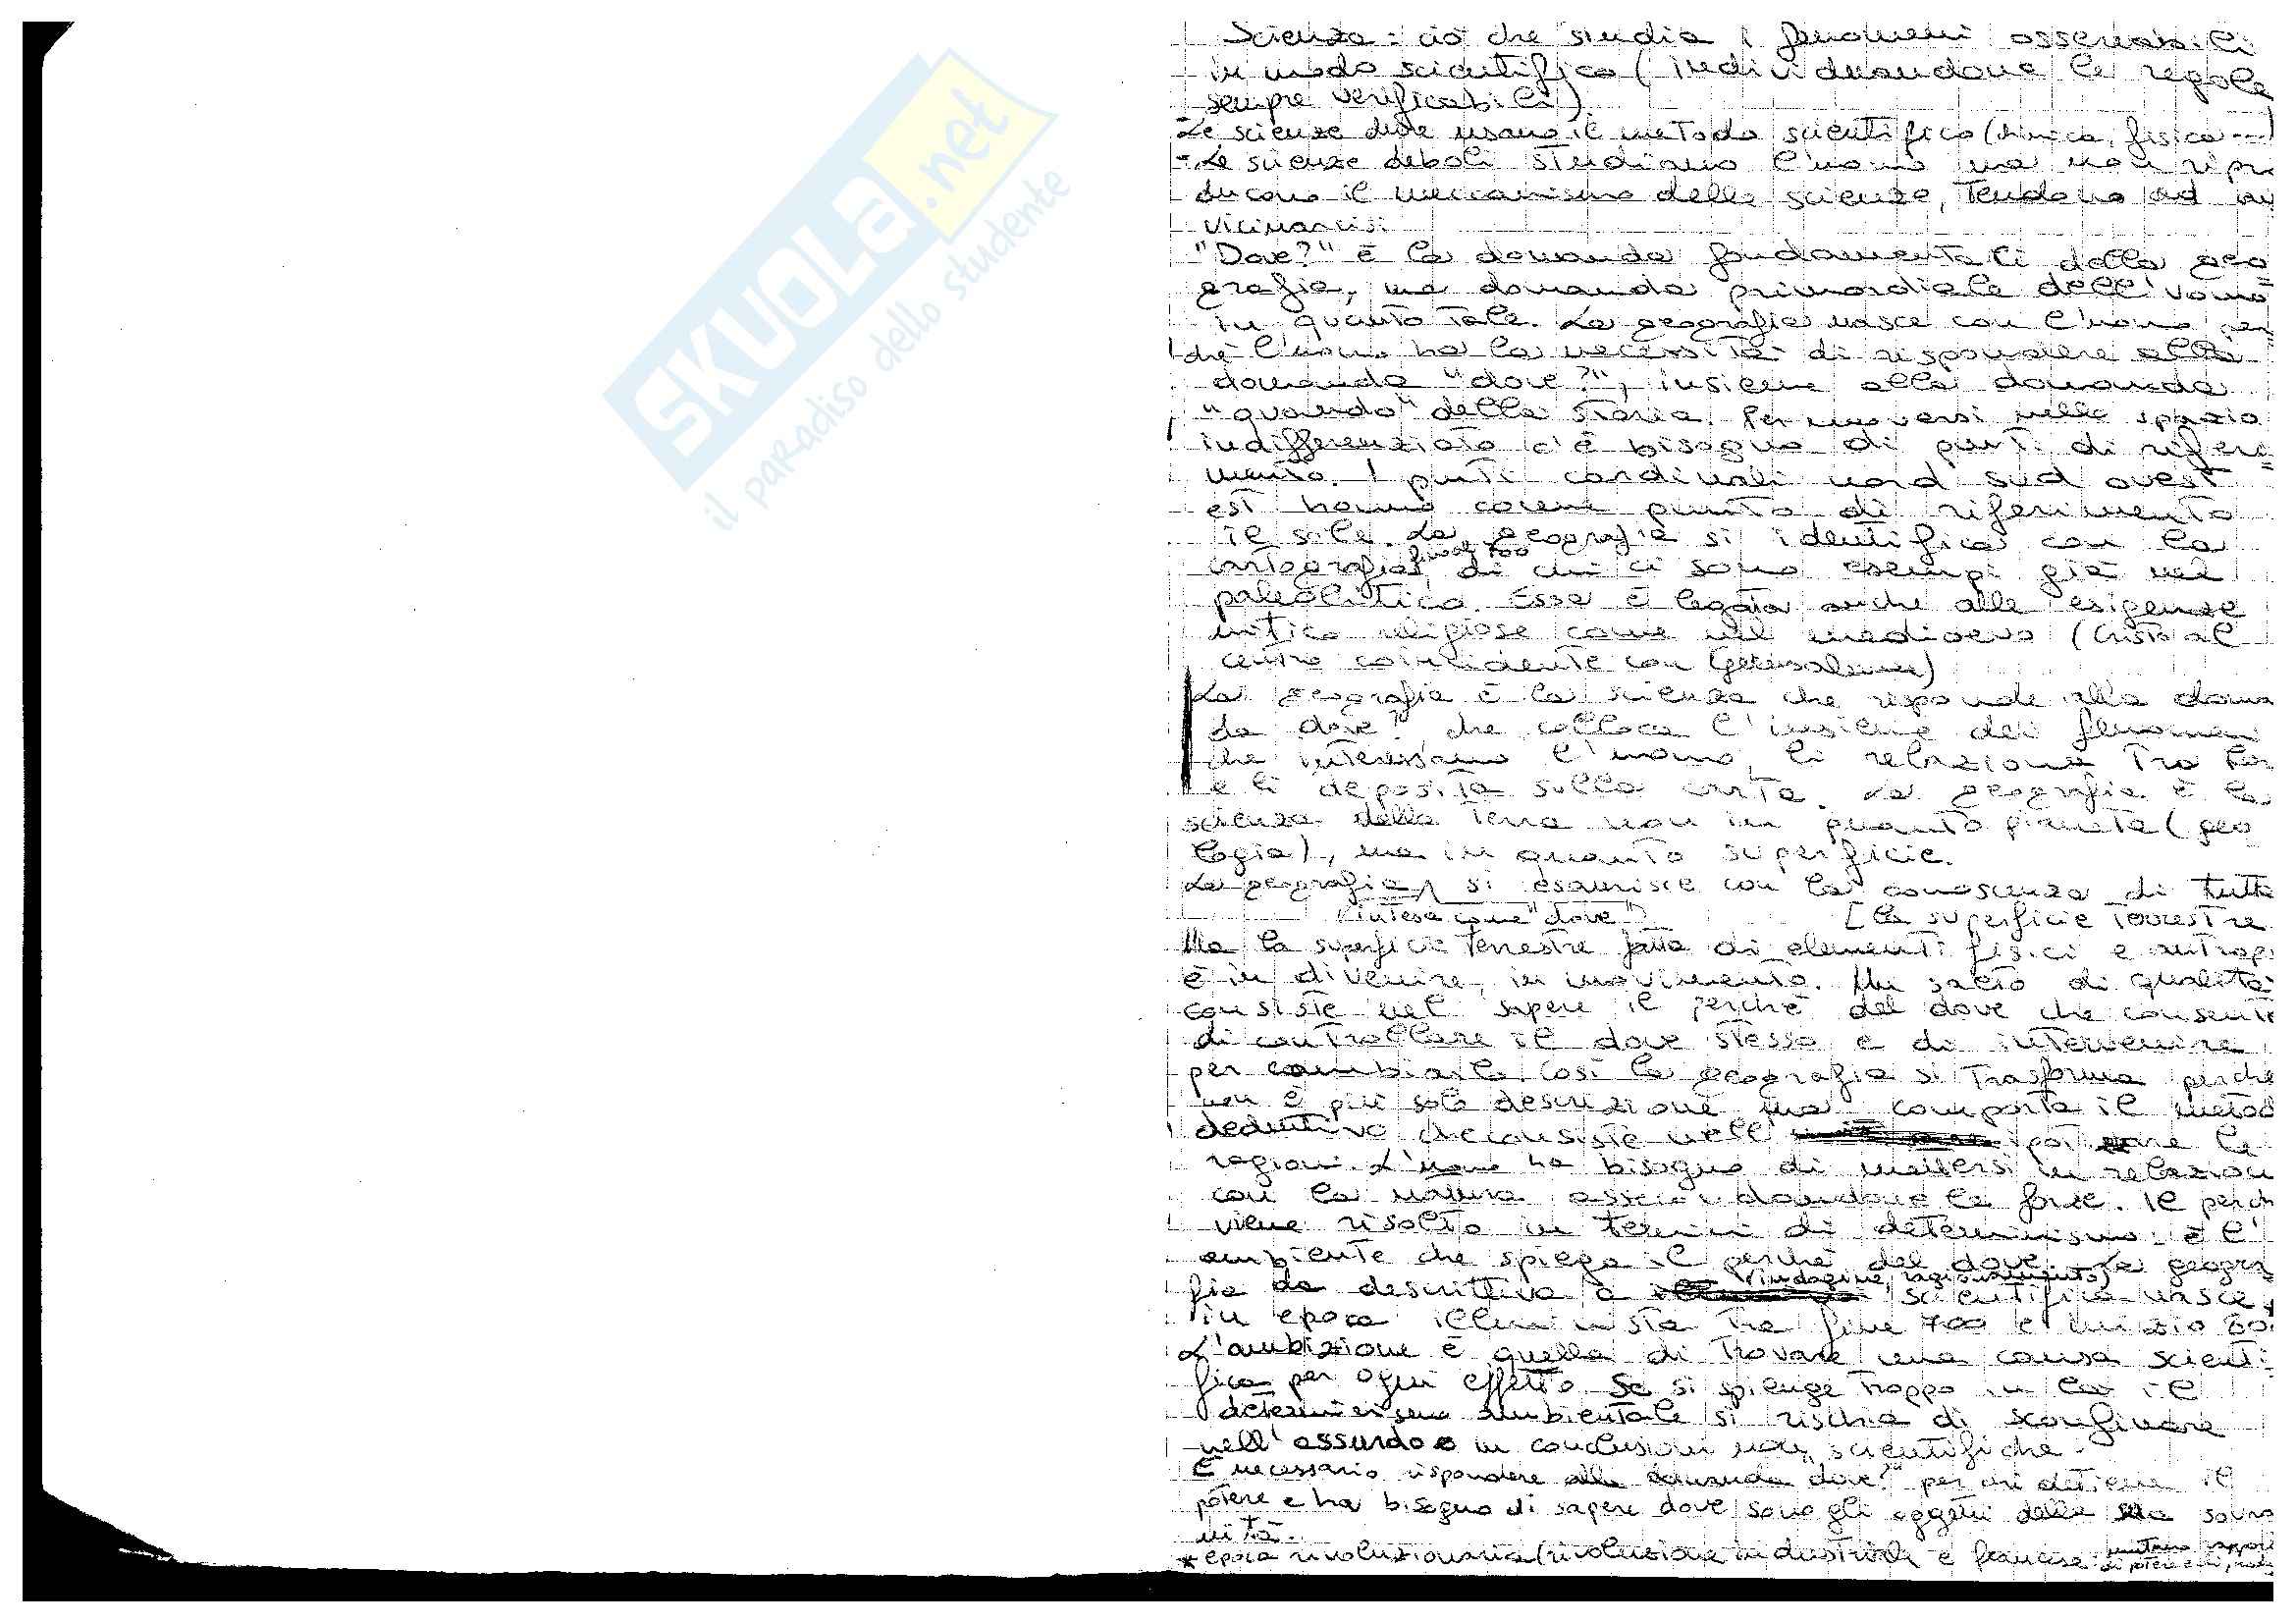 SKUOLA.net
il paradiso dello studente
Scienza: ciò che studia i fenomeni osservabili
in modo scientifico (individuandone le regole
sempre verificabili)
-Le scienze dure usano il metodo scientifico (chimica, fisica ---)
-Le scienze deboli studiano l'uomo ma non ripro
ducono il meccanismo delle scienze, tendono ad av
vicinarcisi
"Dove?" è la domanda fondamentali della geo
grafia, una domanda primordiale dell'uomo
in quanto tale. La geografia nasce con l'uomo per
chè l'uomo ha la necessità di rispondere alla
domanda "dove?", insieme alla domanda
"quando" della storia. Per muoversi nello spazio
indifferenziato c'è bisogno di punti di riferi
mento. I punti cardinali nord sud ovest
est hanno come punto di riferimento
il sole. La geografia si identifica con la
fino al 700
cartografia, di cui ci sono esempi già nel
paleolitico. Essa è legata anche alle esigenze
mitico religiose come nel medioevo (Cristo al
centro coincidente con Gerusalemme)
La geografia è la scienza che risponde alla doman
da dove?, che colloca l'insieme dei fenomeni
che interessano l'uomo, li relaziona tra loro
e li deposita sulla carta. La geografia è la
scienza della Terra non in quanto pianeta (geo
logia), ma in quanto superficie.
La geografia si esaurisce con la conoscenza di tutta
(intesa come "dove") [la superficie terrestre
Ma la superficie terrestre fatta di elementi fisici e antropi
è in divenire, in movimento. Un salto di qualità
consiste nel sapere il perchè del dove che consente
di controllare il dove stesso e di intervenire
per cambiarlo. Così la geografia si trasforma perchè
non è più solo descrizione ma comporta il metodo
deduttivo che consiste nell' le
ragioni. L'uomo ha bisogno di mettersi in relazion
con la natura assecondandone le forze. Il perch
viene risolto in termini di determinismo: è l'
ambiente che spiega il perchè del dove. La geogra
(indagine, ragionamento)
fia da descrittiva a scientifica nasce*
in epoca illuminista tra fine 700 e inizio 800.
L'ambizione è quella di trovare una causa scienti
fica per ogni effetto. Se si spinge troppo in là il
determinismo ambientale si rischia di sconfinare
nell'assurdo o in conclusioni non scientifiche.
È necessario rispondere alla domanda "dove?" per chi detiene il
potere e ha bisogno di sapere dove sono gli oggetti della sua sovra
nità.
*epoca rivoluzionaria (rivoluzione industriale e francese mutano rappor
di potere